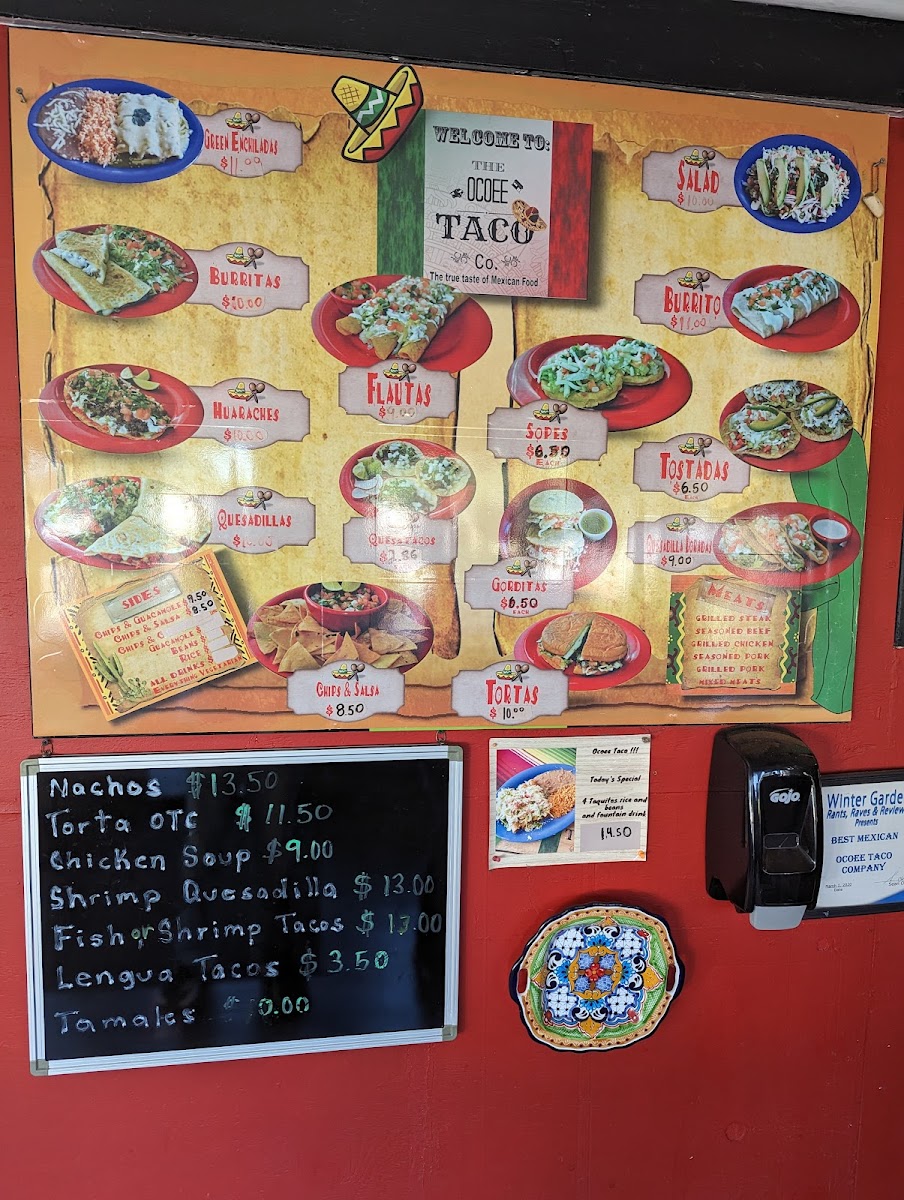 WELCOME TO:
THE
OCOEE
TACO
Co.
The true taste of Mexican Food
GREEN ENCHILADAS
$11.09
BURRITAS
$10.00
HUARACHES
$10.00
QUESADILLAS
FLAUTAS
$9.00
QUESATACOS
SALAD
$10.00
BURRITO
$11.00
SOPES
$6.50
EACH
TOSTADAS
$6.50
EACH
GORDITAS
$6.50
EACH
QUESADILLA DORADAS
$9.00
SIDES
CHIPS & GUACAMOLE $9.50
CHIPS & SALSA $8.50
CHIPS &
GUACAMOLE $
BEANS $
RICE $
ALL DRINKS $
EVERYTHING VEGETARIAN
CHIPS & SALSA
$8.50
TORTAS
$10.00
MEATS
GRILLED STEAK
SEASONED BEEF
GRILLED CHICKEN
SEASONED PORK
GRILLED PORK
MIXED MEATS
Nachos $13.50
Torta OTC $11.50
Chicken Soup $9.00
Shrimp Quesadilla $13.00
Fish or Shrimp Tacos $13.00
Lengua Tacos $3.50
Tamales
Ocoee Taco !!!
Today's Special
4 Taquitos rice and
beans
and fountain drink
14.50
GOJO
Winter Garde
Rants, Raves & Review
Presents
BEST MEXICAN
OCOEE TACO
COMPANY